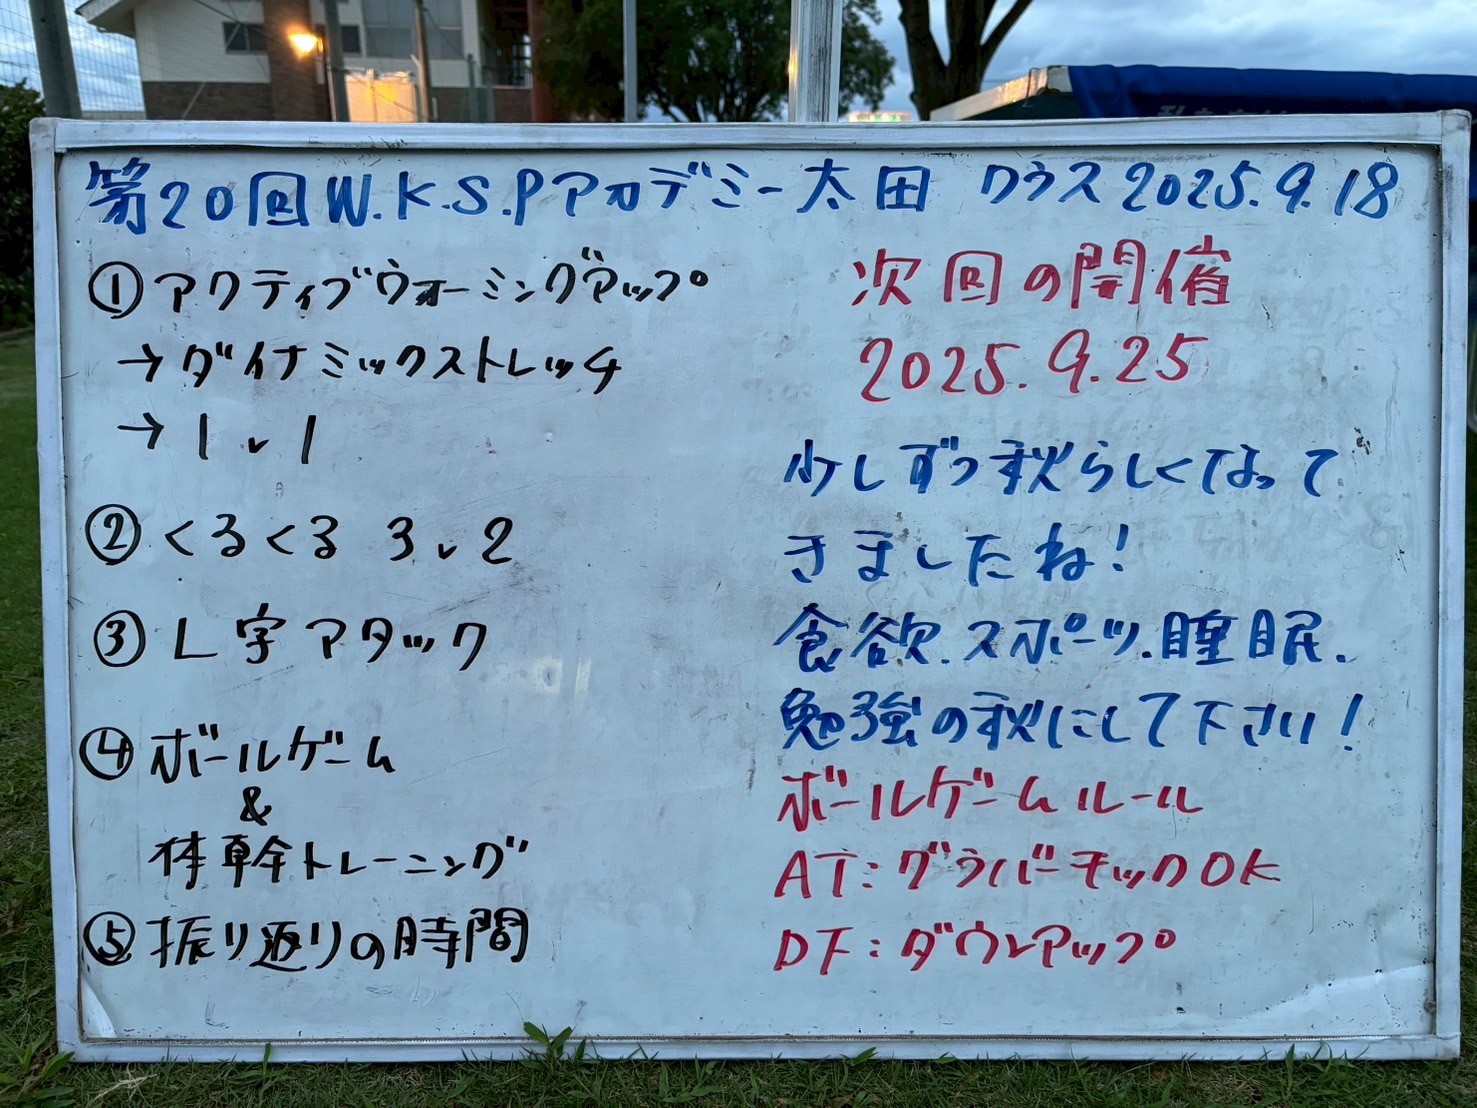 第20回W.K.S.Pアカデミー太田 クラス2025.9.18
①アクティブウォーミングアップ
→ダイナミックストレッチ
→1v1
②くるくる 3v2
③L字アタック
④ボールゲーム
&
体幹トレーニング
⑤振り返りの時間
次回の開催
2025.9.25
少しずつ秋らしくなって
きましたね!
食欲.スポーツ.睡眠.
勉強の秋にして下さい!
ボールゲームルール
AT:グラバーモックOK
DF:ダウンアップ